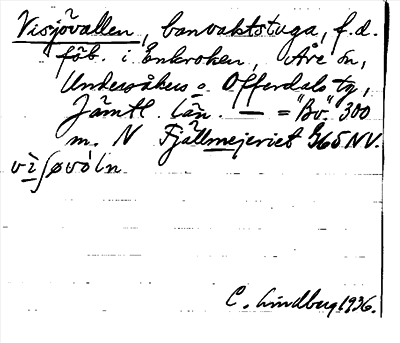 Visjövallen, banvaktstuga, f.d.
fäb. i Enkroken, Åre sn,
Undersåkers o. Offerdals tg,
Jämtl. län. — = "Bv." 300
m. N Fjällmejeriet G65 NV.
vìʃøvòln.
C. Lindberg 1936.